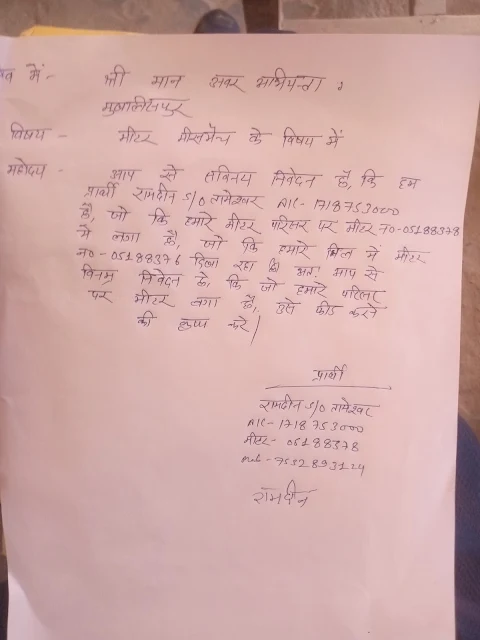 में :- श्री मान अवर अभियन्ता :
मुबालिसपुर
विषय - मीटर मीसमैच के विषय में
महोदय - आप से सविनय निवेदन है, कि हम
प्रार्थी रामदीन S/O रामेश्वर A/C - 1718753000
है, जो कि हमारे मीटर परिसर पर मीटर नo-05188378
मे लगा है, जो कि हमारे बिल में मीटर
नo - 05188376 दिखा रहा है अतः आप से
विनम्र निवेदन है, कि जो हमारे परिसर
पर मीटर लगा है, उसे फीड करने
की कृपा करे|
प्रार्थी
रामदीन S/O रामेश्वर
A/C- 1718753000
मीटर - 05188378
Mob - 9532893124
रामदीन